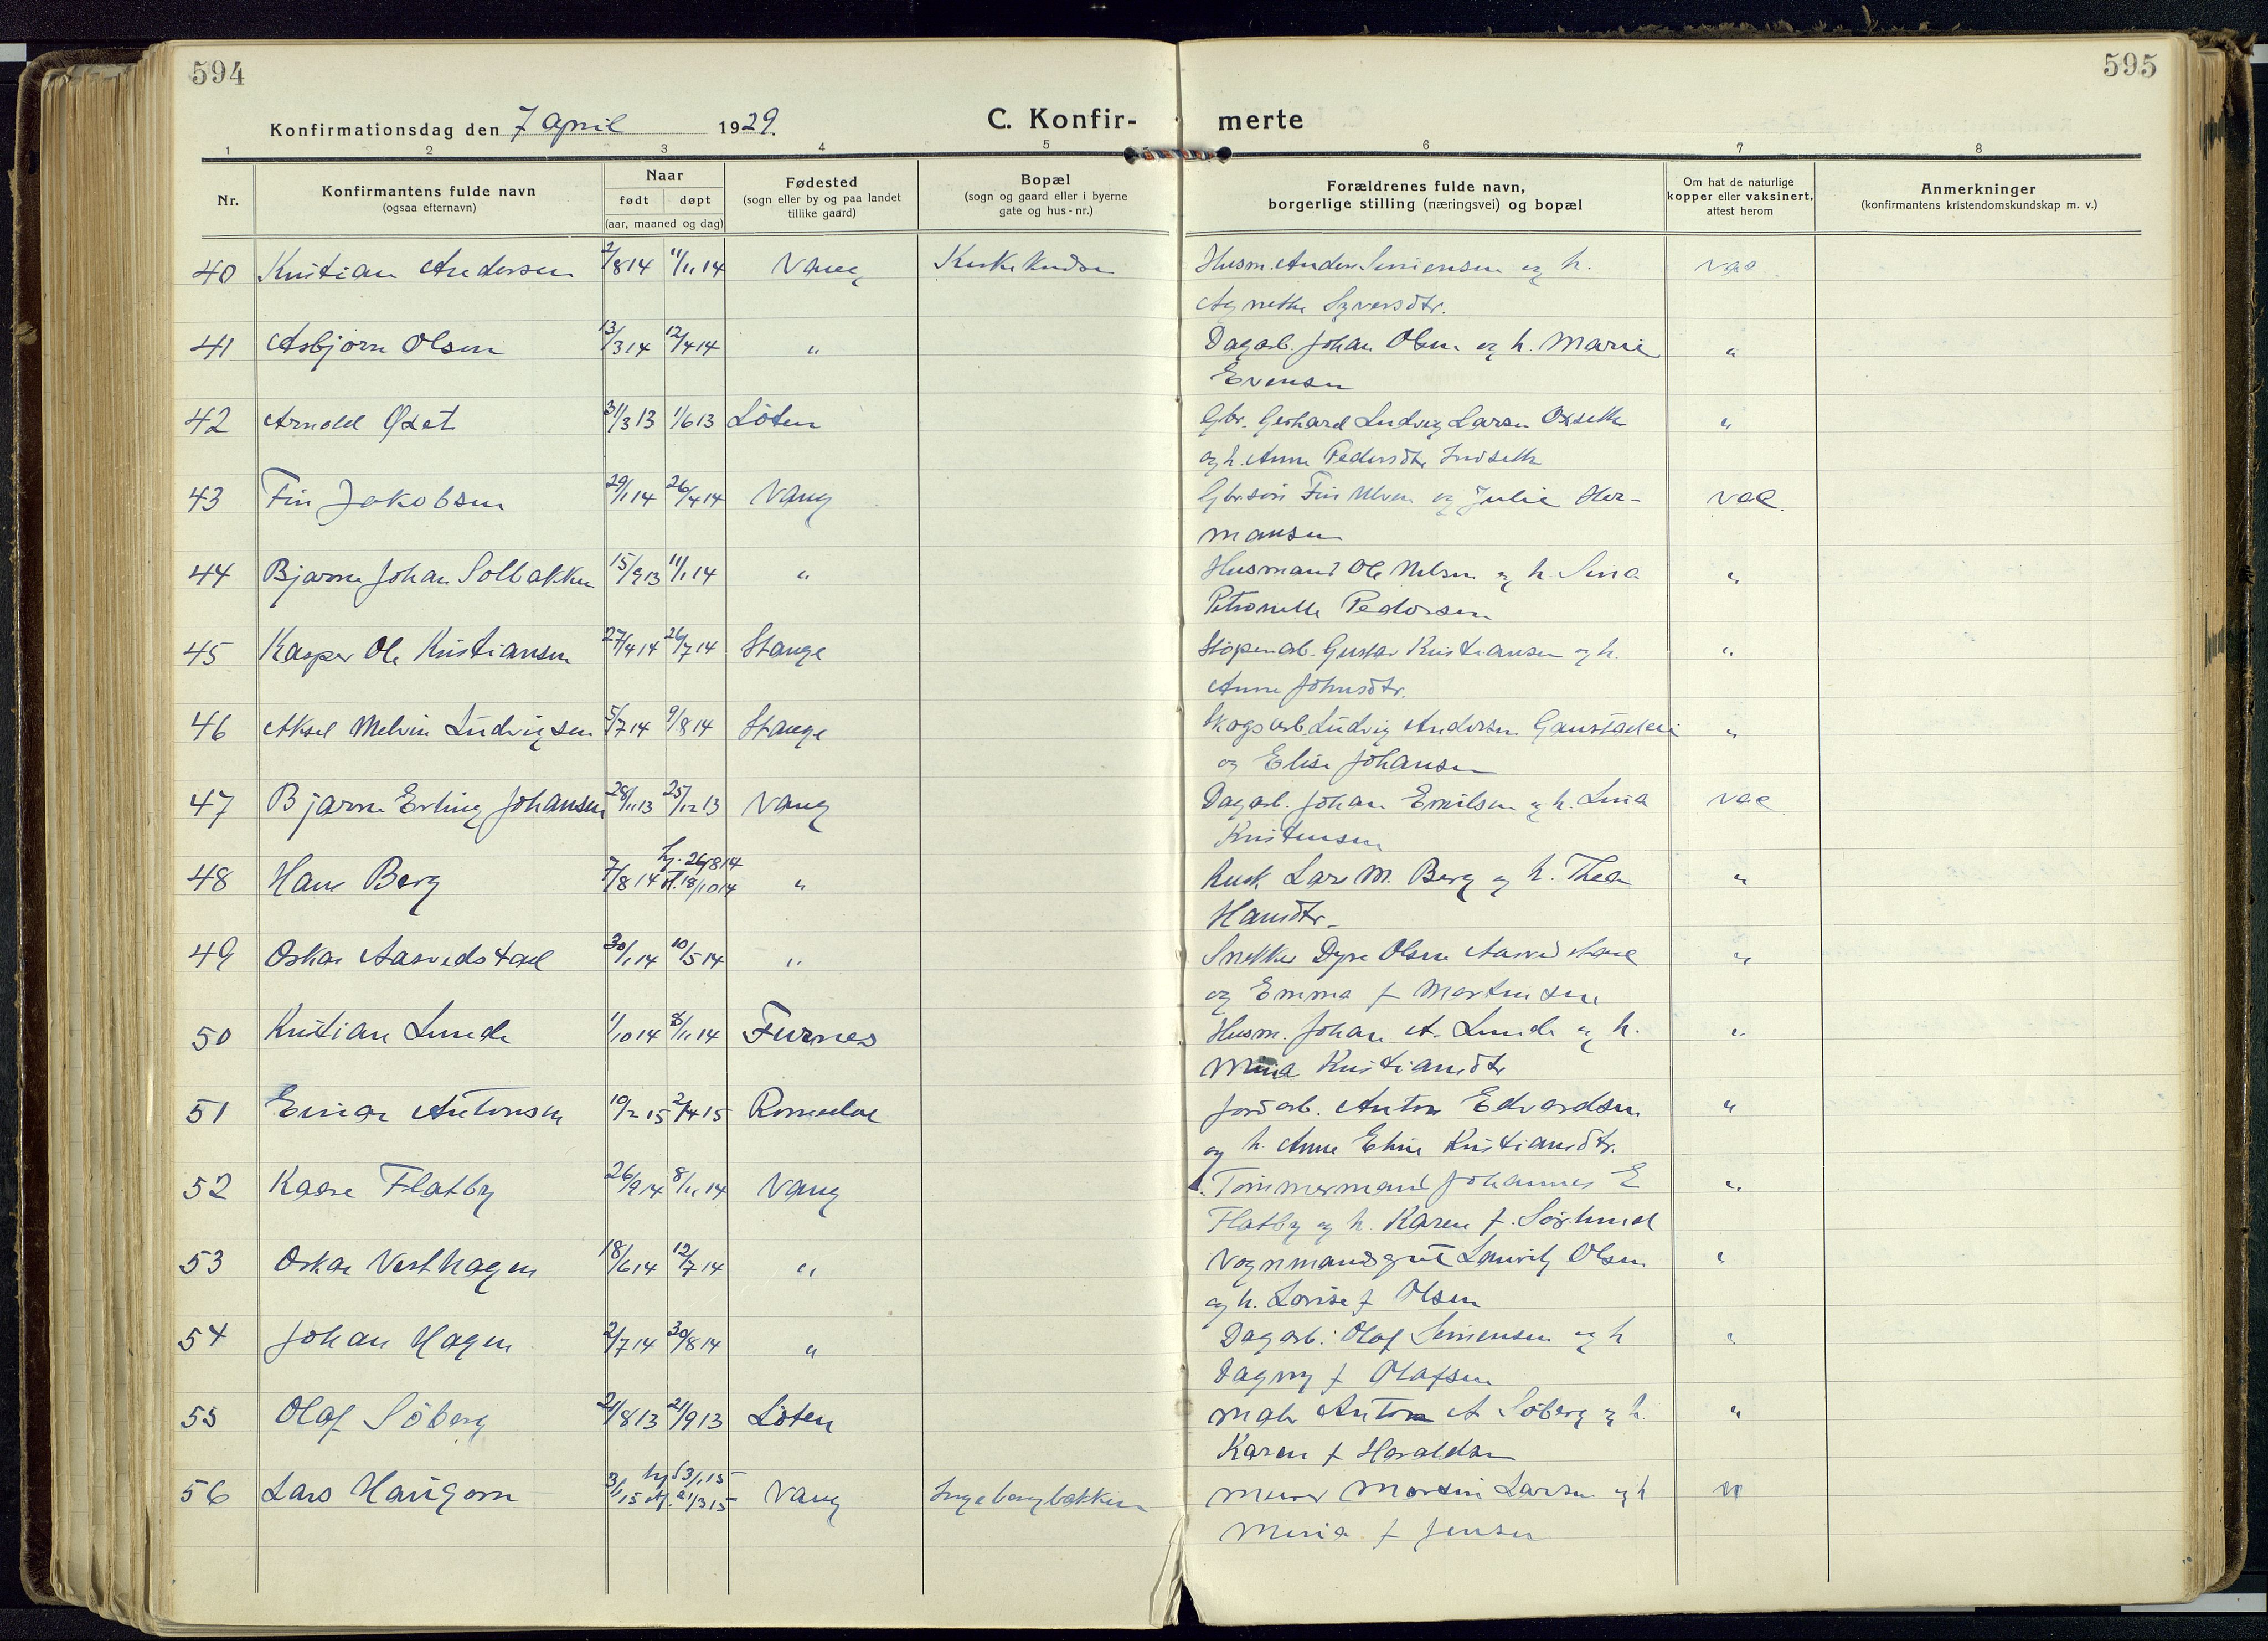 594
595
Konfirmationsdag den 7 April 1929.
C. Konfir-
merte
1 2 3 4 5 6 7 8
Nr.
Konfirmantens fulde navn
(ogsaa efternavn)
Naar
født døpt
(aar, maaned og dag)
Fødested
(sogn eller by og paa landet
tillike gaard)
Bopæl
(sogn og gaard eller i byerne
gate og hus-nr.)
Forældrenes fulde navn,
borgerlige stilling (næringsvei) og bopæl
Om hat de naturlige
kopper eller vaksinert,
attest herom
Anmerkninger
(konfirmantens kristendomskundskap m. v.)
40 Kristian Andersen 2/8 14 1/11 14 Vang Husm. Anders Simensen og h. vac
Agnethe Syversdtr.
41 Asbjørn Olsen 13/3 14 12/4 14 " Dagarb. Johan Olsen og h. Marie "
Evensen
42 Arnold Oxet 31/3 13 1/6 13 Löten Gbr. Gerhard Ludvig Larsen Oxseth "
og h. Anne Pedersdtr
43 Fin Jakobsen 29/1 14 26/4 14 Vang Gbr.søn Fin og Julie Her- vac.
mansen
44 Bjarne Johan Solbakken 15/9 13 11/1 14 " Husmand Ole Nilsen og h. Sina "
Petronelle Pedersen
45 Kasper Ole Kristiansen 27/4 14 26/7 14 Stange Gustav Kristiansen og h. "
Anne Johnsdtr.
46 Aksel Melvin Ludvigsen 5/7 14 9/8 14 Stange Skogsarb. Ludvig Andersen "
og Elise Johansen
47 Bjarne Erling Johansen 28/11 13 25/12 13 Vang Dagarb. Johan Emilsen og h. Lina vac
Kristensen
48 Hans Berg 7/8 14 hj. 26/8 14
st. 18/10 14 " Kusk Lars M. Berg og h. Thea "
Hansdtr.
49 Oskar Aasvedstad 30/1 14 10/5 14 " Snekker Dyre Olsen Aasvedstad "
og Emma f Martinsen
50 Kristian Lunde 1/10 14 8/11 14 Furnes Husm. Johan A. Lunde og h. "
Mina Kristiansdtr
51 Einar Antonsen 10/2 15 2/4 15 Romedal Jordarb. Anton Edvardsen "
og h. Anne Eline Kristiansdtr.
52 Kaare Flatby 26/9 14 8/11 14 Vang Tömmermand Johannes E "
Flatby og h. Karen f. Sörlund
53 Oskar Vesthagen 18/6 14 12/7 14 " Vognmandsgut Lauritz Olsen "
og h. Lovise f Olsen
54 Johan Hagen 2/7 14 30/8 14 " Dagarb. Olaf Simensen og h "
Dagny f Olafsen
55 Olaf Söberg 21/8 13 21/9 13 Löten Maler Anton A Söberg og h. "
Karen f Haraldsen
56 Lars Haugom 3/1 15 hj 13/1 15
st. 21/3 15 Vang Ingeborgbakken Murer Martin Larsen og h "
Mina f Jensen